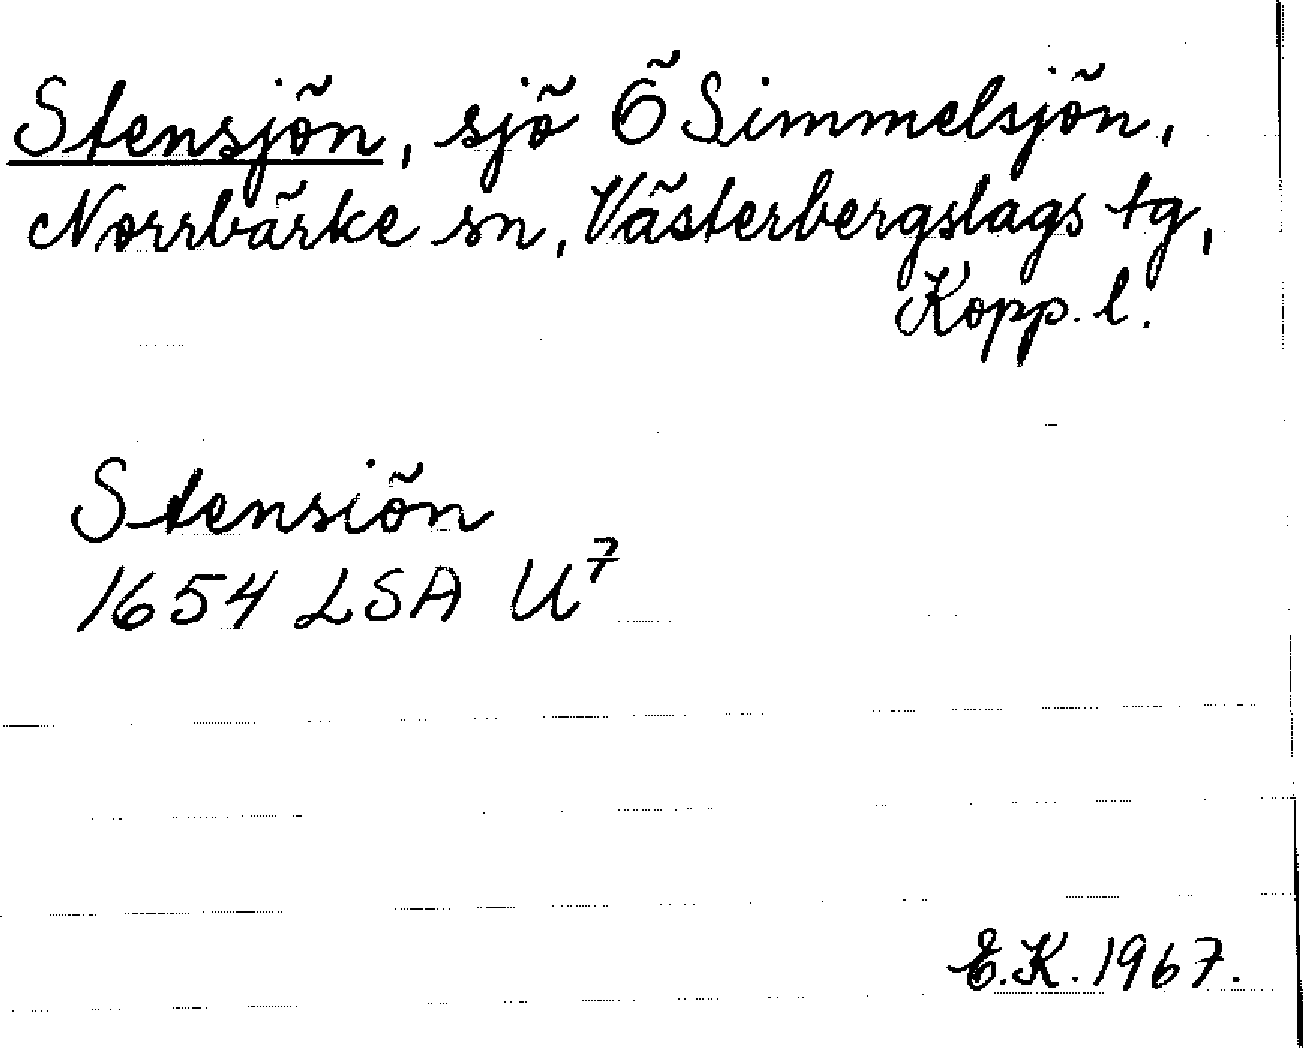 Stensjön, sjö Ö Simmelsjön,
Norrbärke sn, Västerbergslags tg,
Kopp. l.
Stensiön
1654 LSA U⁷
E.K. 1967.